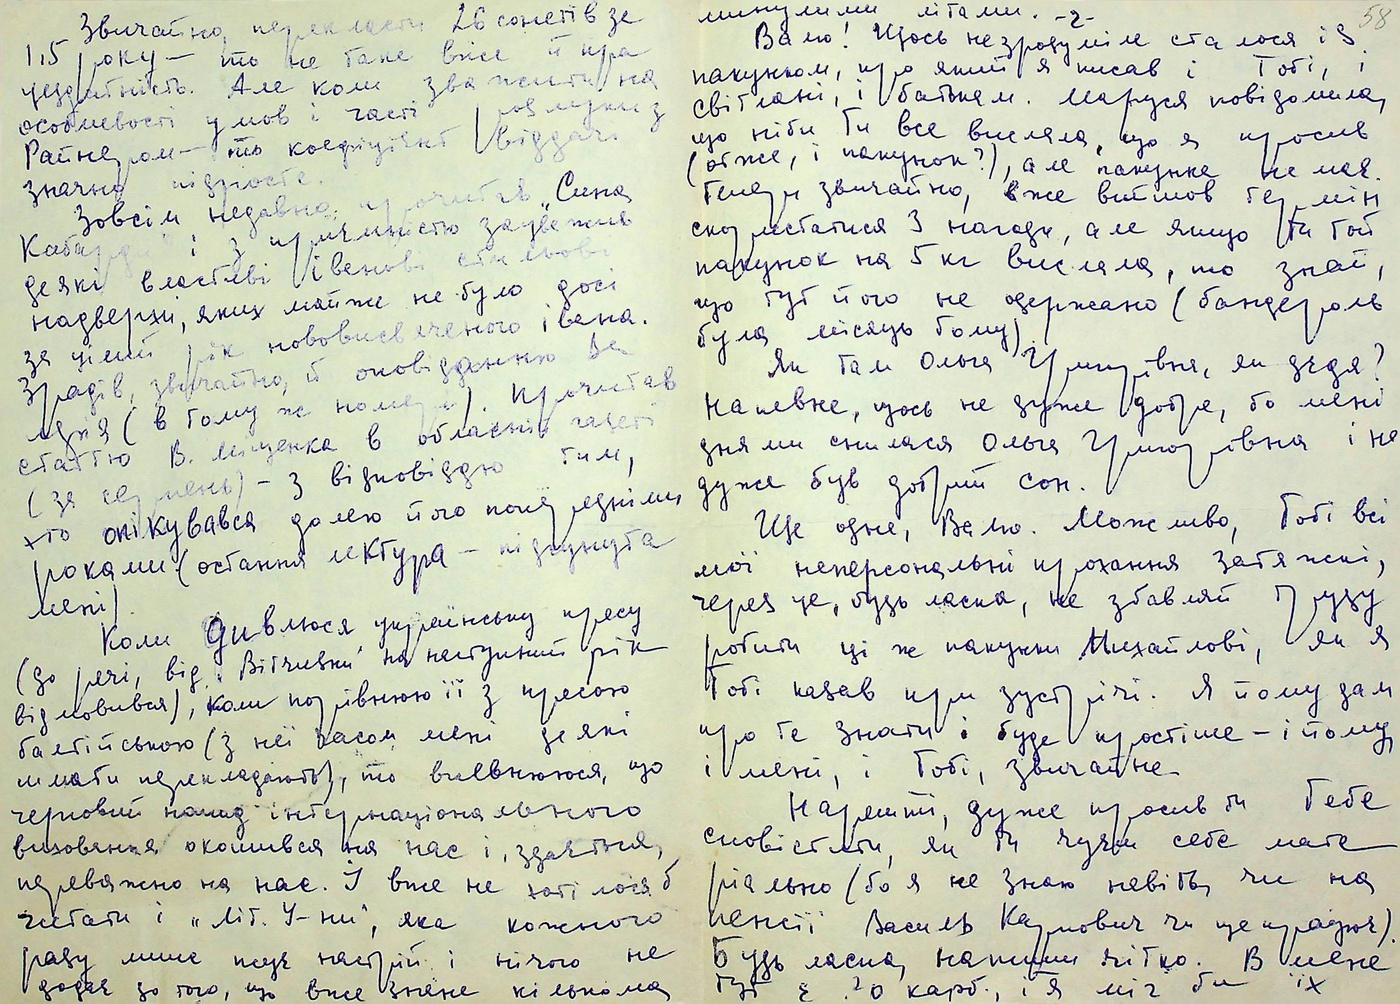 Звичайно, перекласти 26 сонетів за
1,5 року — то не таке вже й пра
цездатність. Але коли зважити на
особливості умов і часті розмови з
Райнером — то коефіцієнт віддачі
значно підросте.
Зовсім недавно прочитав „Сина
Кабарди" і з приємністю зауважив
деякі властиві Івенові стильові
надверхи, яких майже не було досі
за цілий рік нововисвяченого Івена.
Зрадів, звичайно, й оповіданню Ва
лерія (в тому ж номері). Прочитав
статтю В. Міщенка в обласній газеті
(за серпень) — з відповіддю тим,
хто опікувався долею його попередніми
роками (остання лектура — підкинута
мені).
Коли дивлюся українську пресу
(до речі, від „Вітчизни" на наступний рік
відмовився), коли порівнюю її з пресою
балтійською (з неї часом мені деякі
шмати перекладають), то виявнююся, що
черговий напад інтернаціонального
виховання окошився на нас і, здається,
переважно на нас. І вже не хотілося б
читати і „Літ. У-ни", яка кожного
разу лише псує настрій і нічого не
додає до того, що вже знане кількома
минулими літами. -2-
58
Валю! Щось незрозуміле сталося із
пакунком, про який я писав і Тобі, і
Світлані, і батькам. Маруся повідомила,
що ніби Ти все вислала, що я просив
(отже, і пакунок?), але пакунка немає.
Тепер, звичайно, вже вийшов термін
скористатися з нагоди, але якщо Ти той
пакунок на 5 кг вислала, то знай,
що тут його не одержано (бандероль
була місяць тому).
Як там Ольга Григорівна, як дядя?
Напевне, щось не дуже добре, бо мені
днями снилася Ольга Григорівна і не
дуже був добрий сон.
Ще одне, Валю. Можливо, Тобі всі
мої неперсональні прохання затяжкі,
через це, будь ласка, не збавляй труду
робити ці ж пакунки Михайлові, як я
Тобі казав при зустрічі. Я йому дам
про те знати і буде простіше — і йому,
і мені, і Тобі, звичайне.
Нарешті, дуже просив би Тебе
сповістити, як Ти чуєш себе мате
ріально (бо я не знаю навіть, чи на
пенсії Василь Карпович чи ще працює).
Будь ласка, напиши чітко. В мене
тут є карб., і я міг би їх